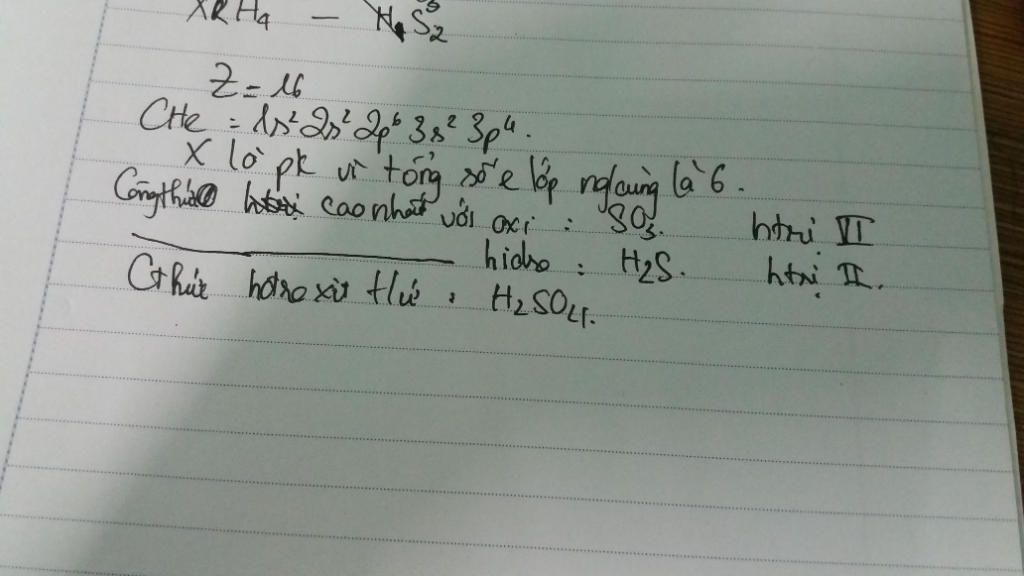 XRH4 — H2S2
Z = 16
CHe = 1s² 2s² 2p⁶ 3s² 3p⁴.
X là pk vì tổng số e lớp ngcùng là 6.
Công thức cao nhất với oxi : SO3. htrị VI
hidro : H2S. htrị II.
Cthức hdroxit tứ : H2SO4.